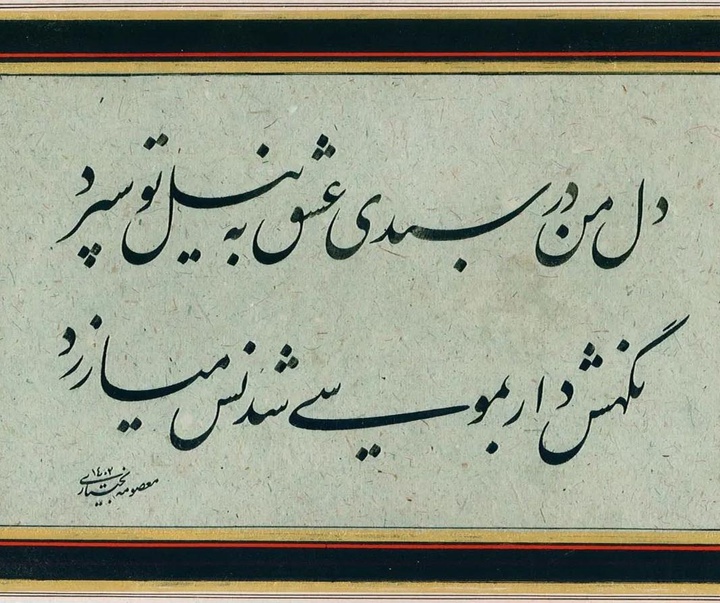 دل من در سبدی عشق به نیل تو سپرد
نگهش دار بموسی شدنش میارزد
معصومه بختیاری ۱۴۰۲